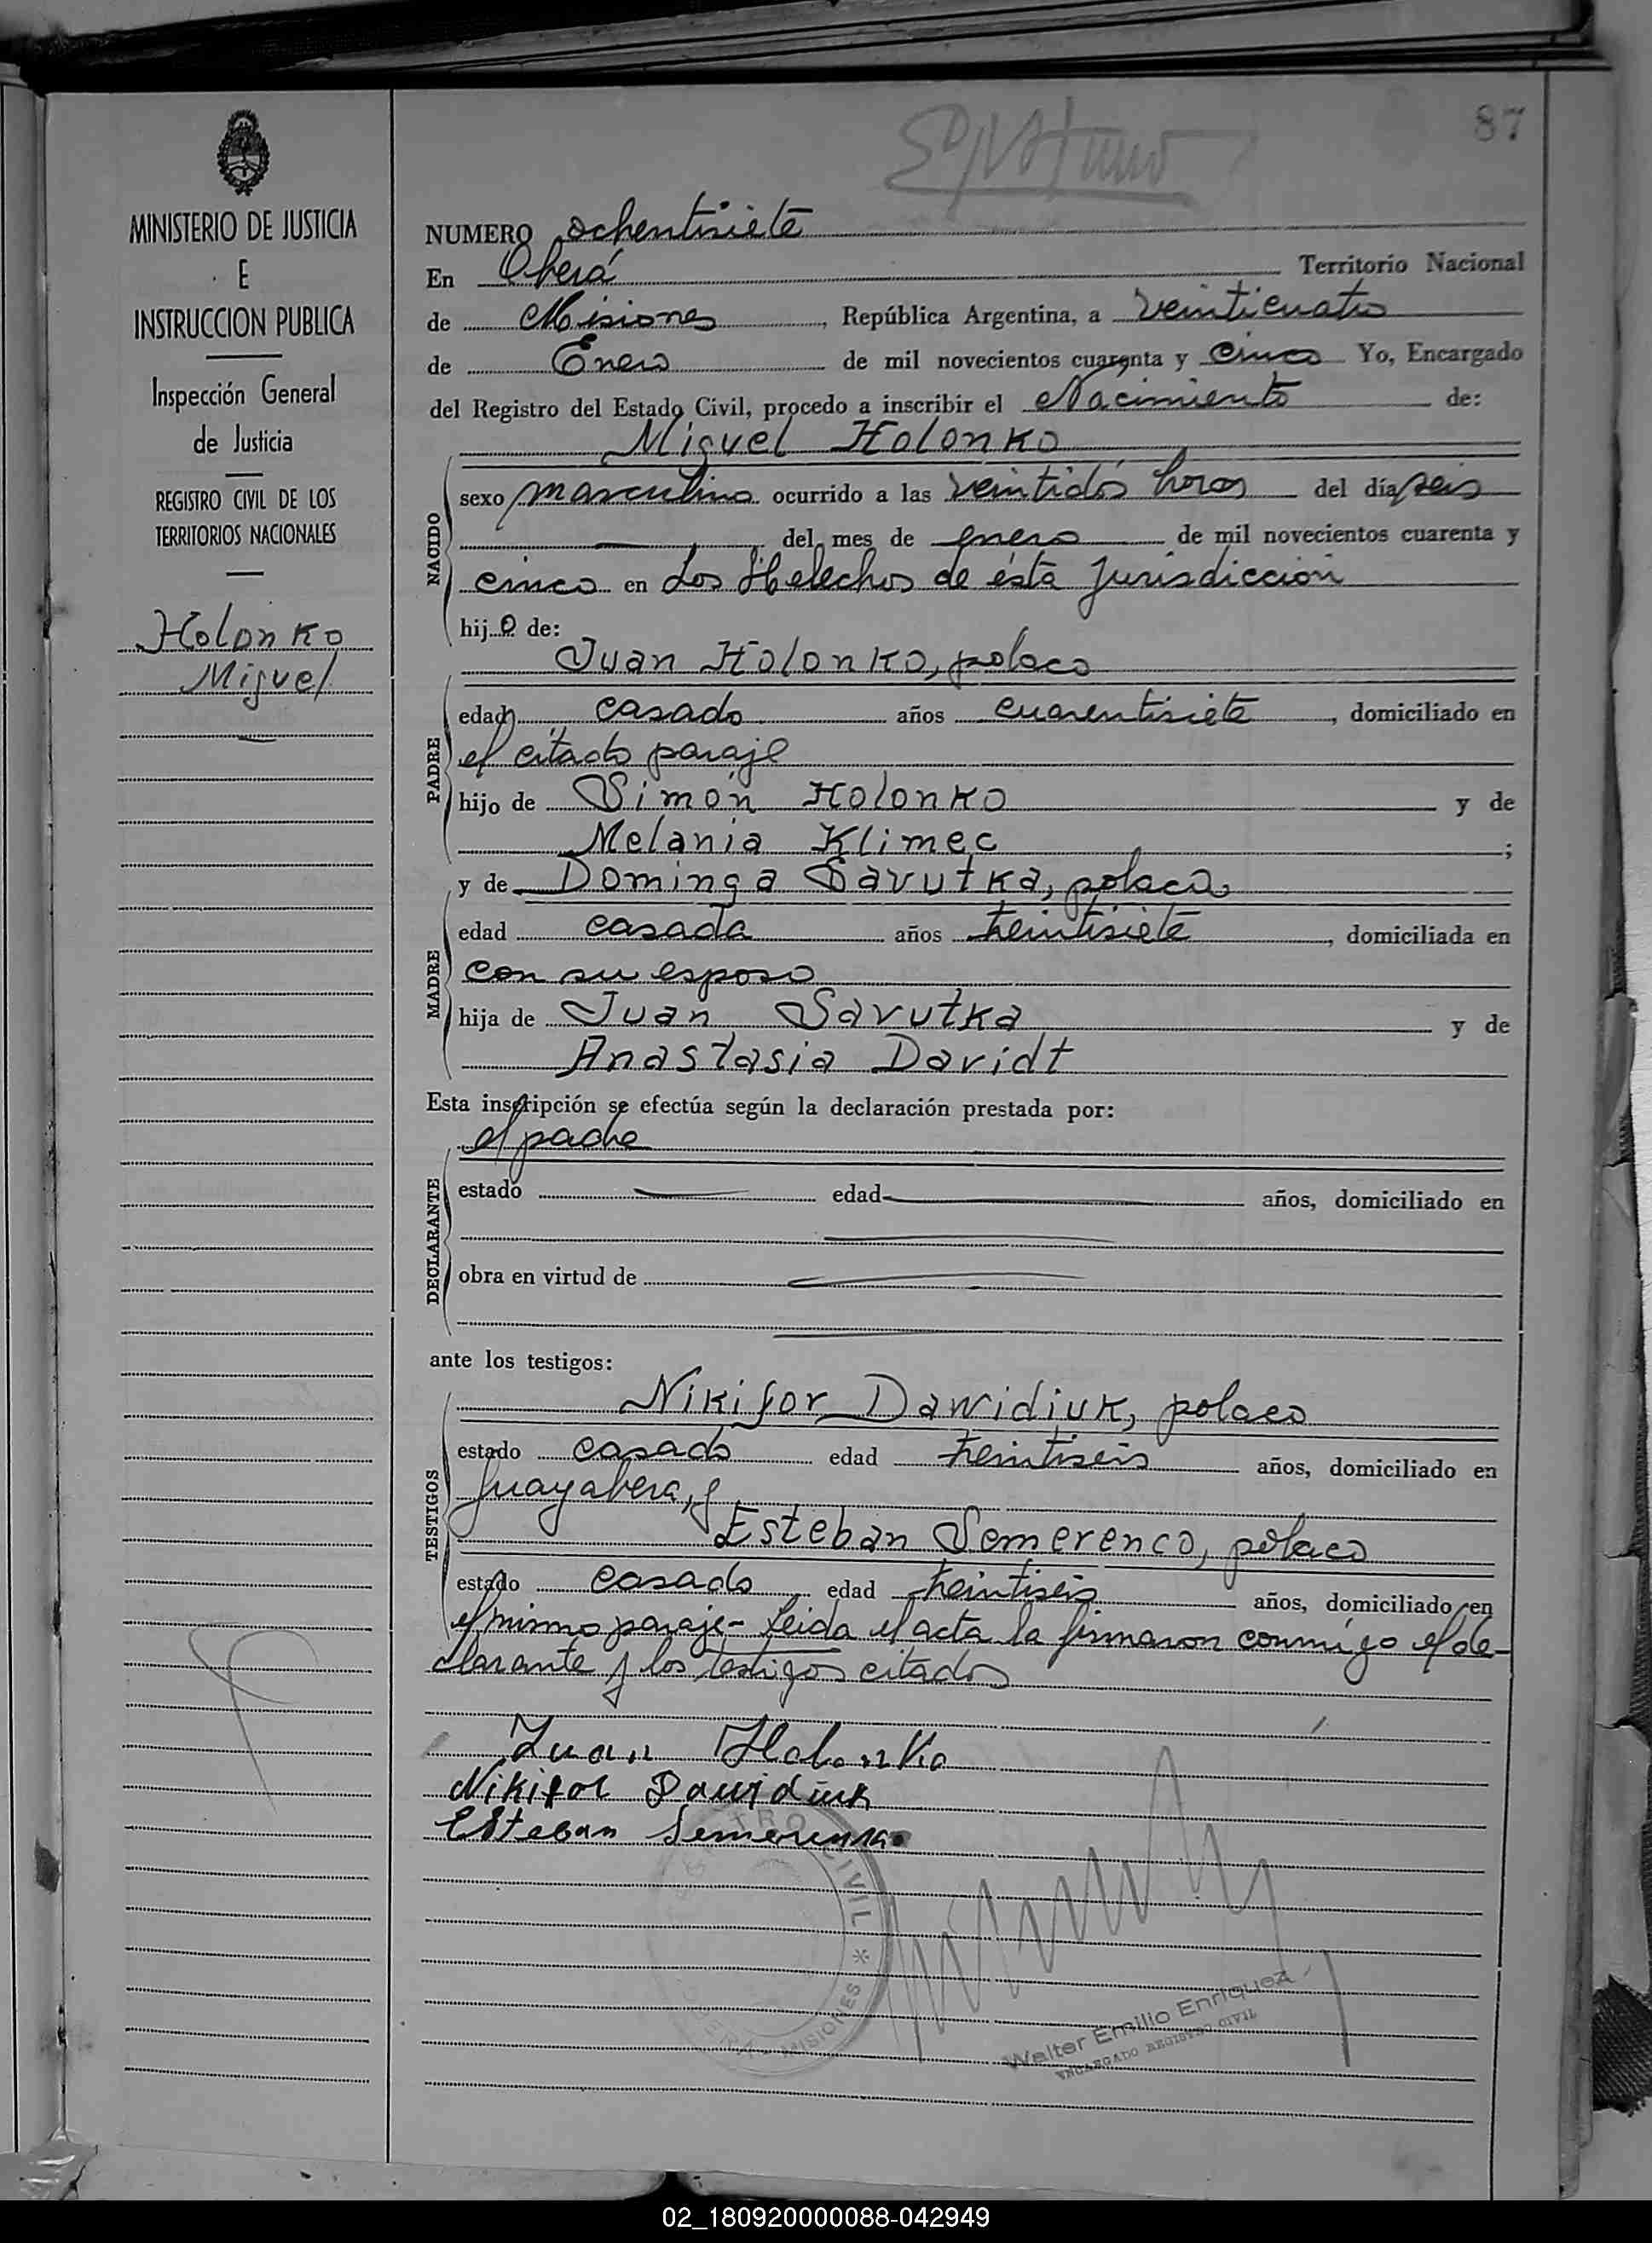 87
NUMERO ochentisiete
En Oberá Territorio Nacional
de Misiones, República Argentina, a veinticuatro
de Enero de mil novecientos cuarenta y cinco Yo, Encargado
del Registro del Estado Civil, procedo a inscribir el Nacimiento de:
Miguel Holonko
NACIDO
sexo masculino ocurrido a las veintidós horas del día seis
del mes de enero de mil novecientos cuarenta y
cinco en Los Helechos de ésta Jurisdicción
hijo de:
Juan Holonko, polaco
PADRE
edad casado años cuarentisiete, domiciliado en
el citado paraje
hijo de Simón Holonko y de
Melania Klimec ;
y de Dominga Savutka, polaca,
MADRE
edad casada años treintisiete, domiciliada en
con su esposo
hija de Juan Savutka y de
Anastasia Davidt
Esta inscripción se efectúa según la declaración prestada por:
el padre
DECLARANTE
estado edad años, domiciliado en
obra en virtud de
ante los testigos:
TESTIGOS
Nikifor Dawidiuk, polaco
estado casado edad treintiseis años, domiciliado en
Guayabera, y
Esteban Semerenco, polaco
estado casado edad treintiseis años, domiciliado en
el mismo paraje- Leida el acta la firmaron conmigo el de-
clarante y los testigos citados
Juan Holonko
Nikifor Dawidiuk
Esteban
REGISTRO CIVIL * OBERA - MISIONES
Walter Emilio Enriquez
ENCARGADO REGISTRO CIVIL
MINISTERIO DE JUSTICIA
E
INSTRUCCION PUBLICA
Inspección General
de Justicia
REGISTRO CIVIL DE LOS
TERRITORIOS NACIONALES
Holonko
Miguel
02_180920000088-042949